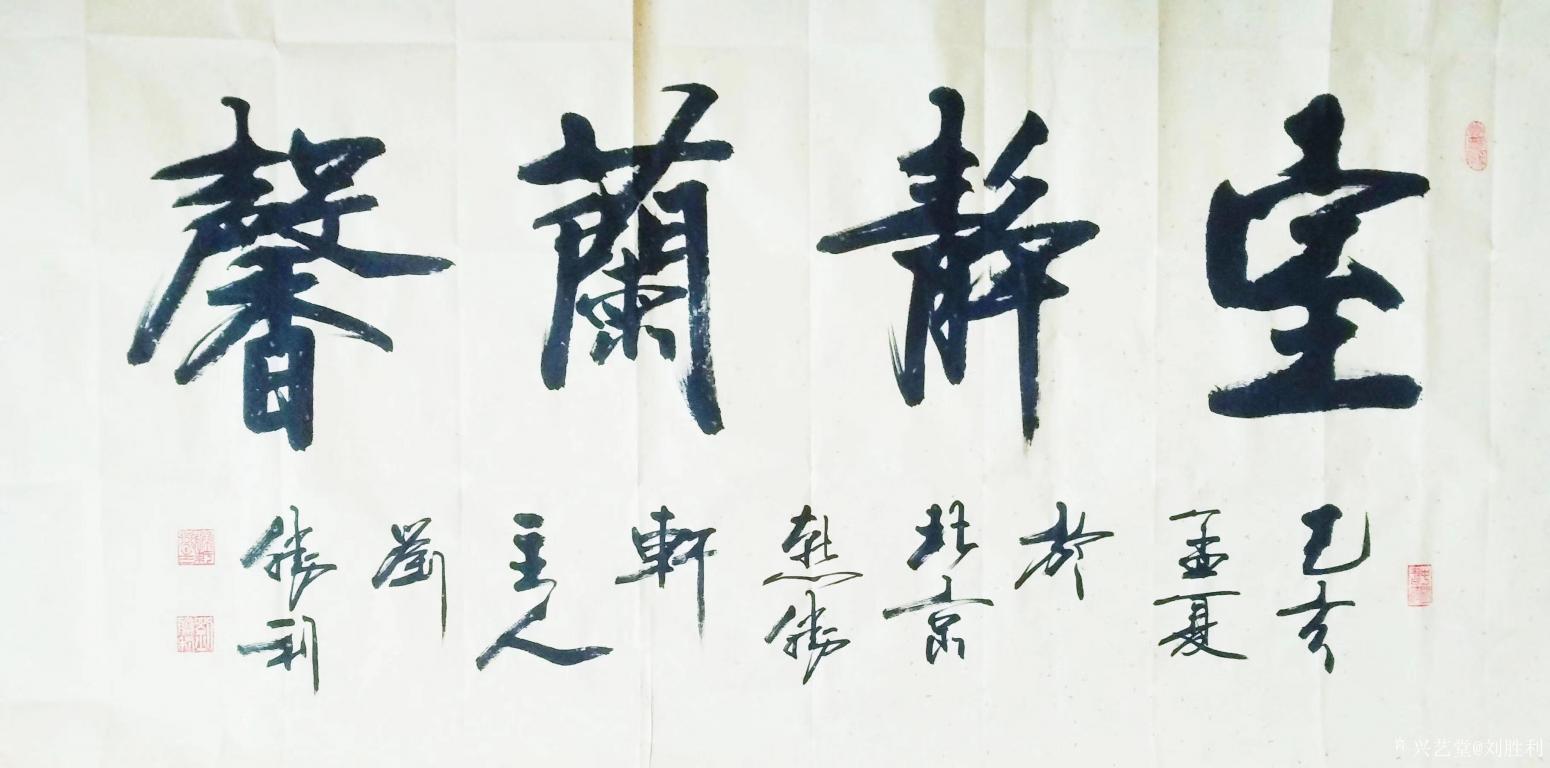 室靜蘭馨
己亥
孟夏
於
北京
懋勝
軒
主人
劉
勝利
兴艺堂@刘胜利